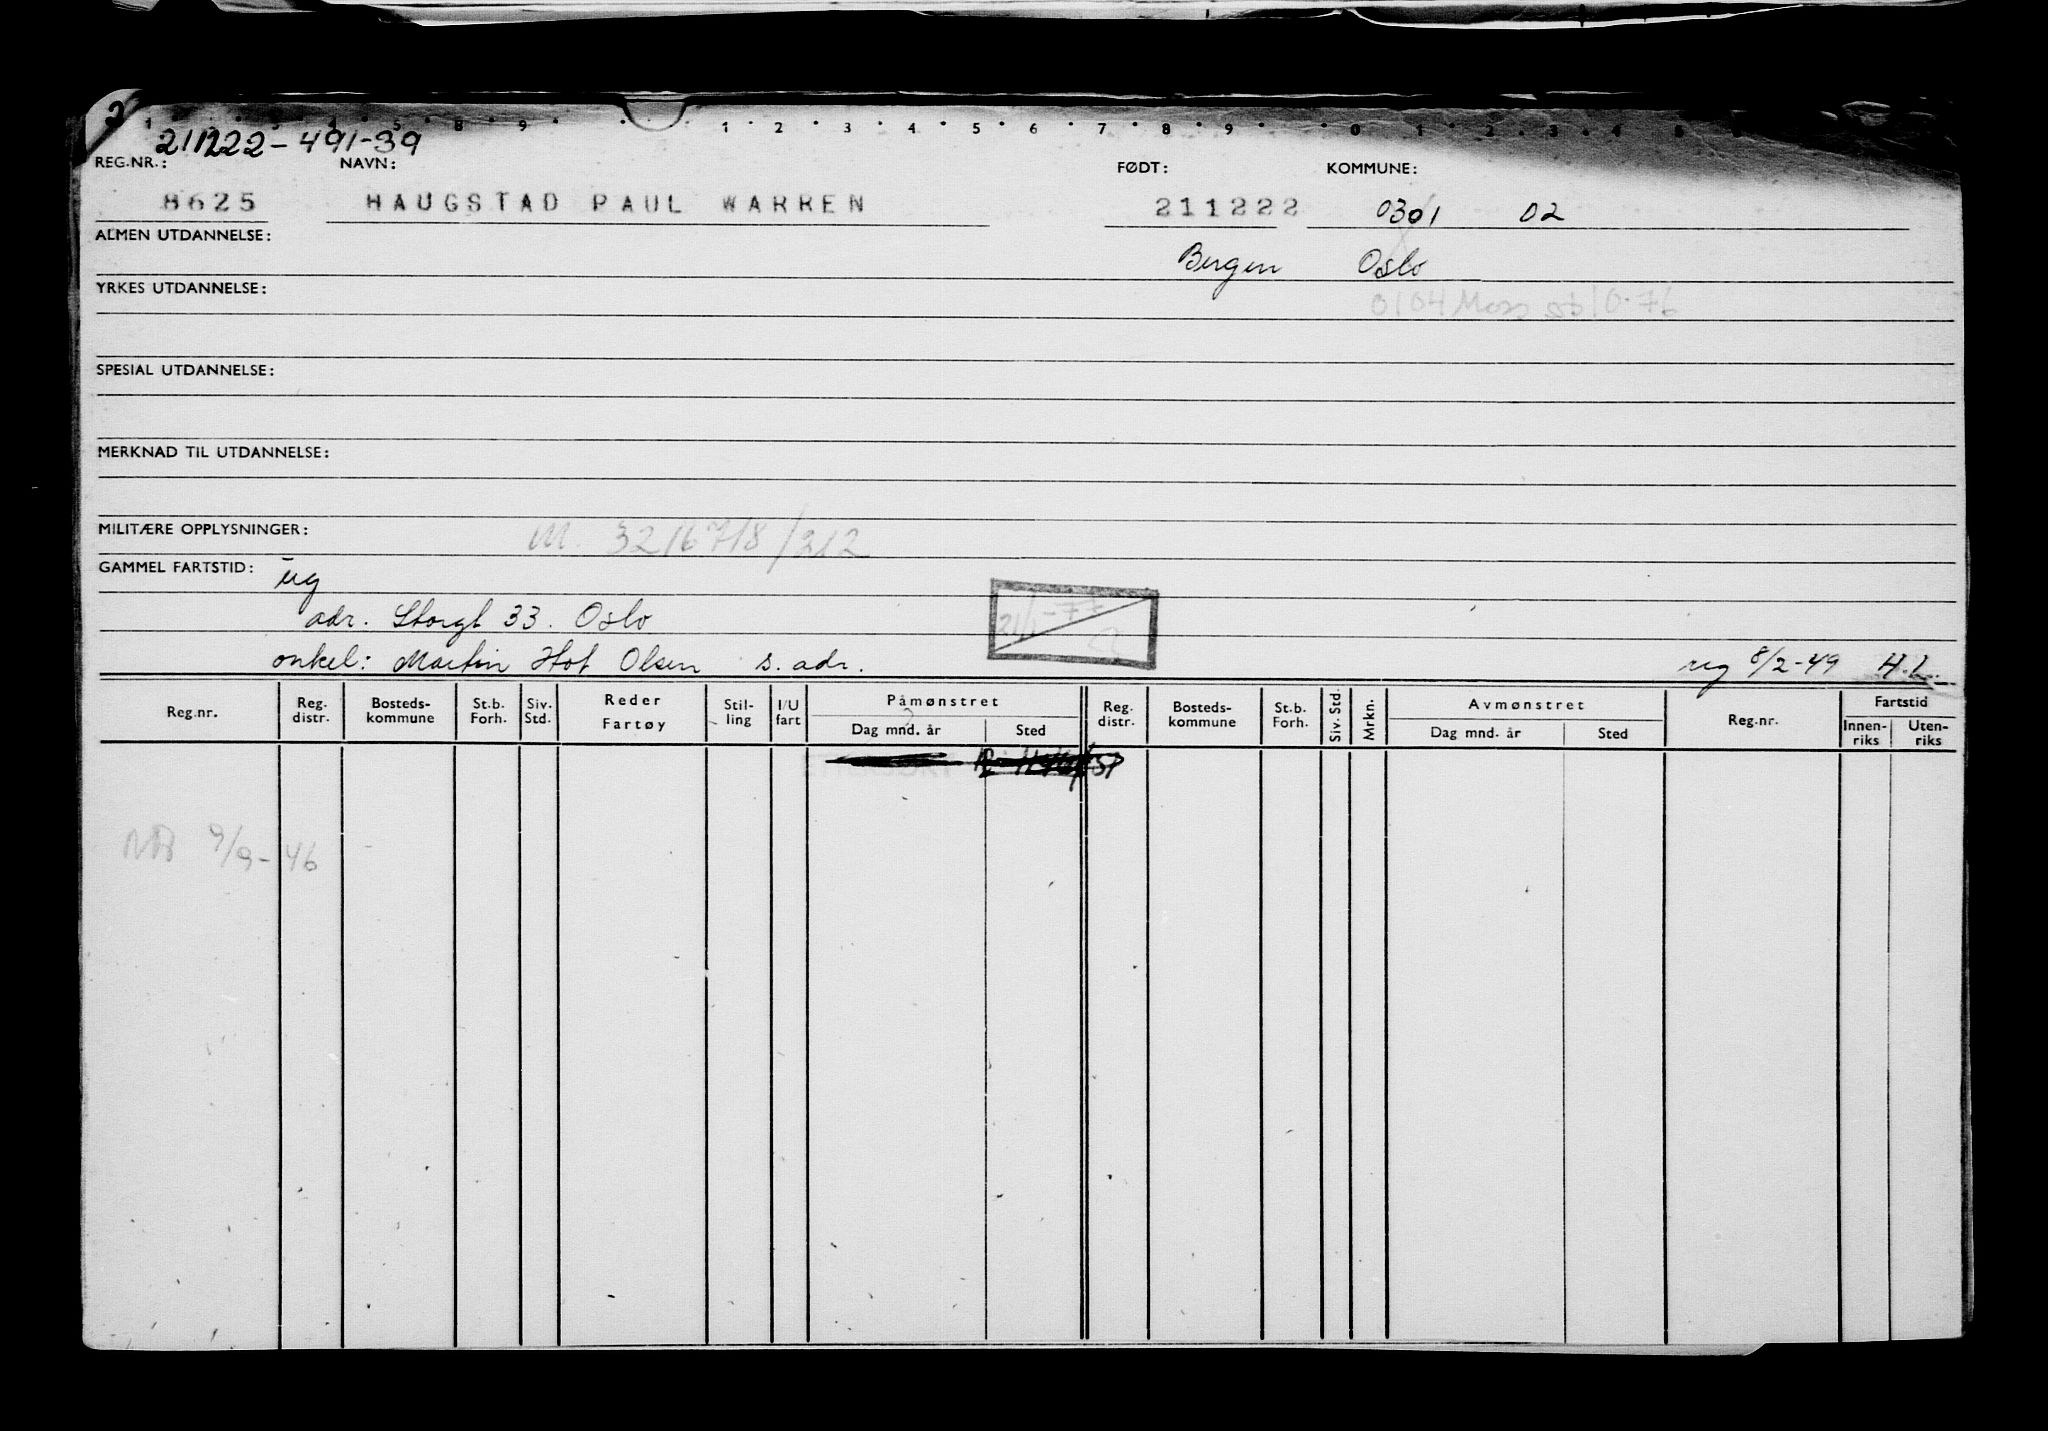 211222-491-39
REG.NR.: NAVN: FØDT: KOMMUNE:
8625 HAUGSTAD PAUL WARREN 211222 0301 02
ALMEN UTDANNELSE:
Bergen Oslo
YRKES UTDANNELSE:
0104 Moss 10-76
SPESIAL UTDANNELSE:
MERKNAD TIL UTDANNELSE:
MILITÆRE OPPLYSNINGER: M. 3216718/312
GAMMEL FARTSTID: ug
adr. Storgt 33. Oslo
21/1-77
onkel: Martin Hof Olsen s. adr. reg 8/2-49 H.L.
Reg.nr. Reg. distr. Bosteds-kommune St.b. Forh. Siv. Std. Reder Fartøy Stil-ling I/U fart Påmønstret Dag mnd. år Sted Reg. distr. Bosteds-kommune St.b. Forh. Siv. Std. Mrkn. Avmønstret Dag mnd. år Sted Reg.nr. Fartstid Innen-riks Uten-riks
9/9-46